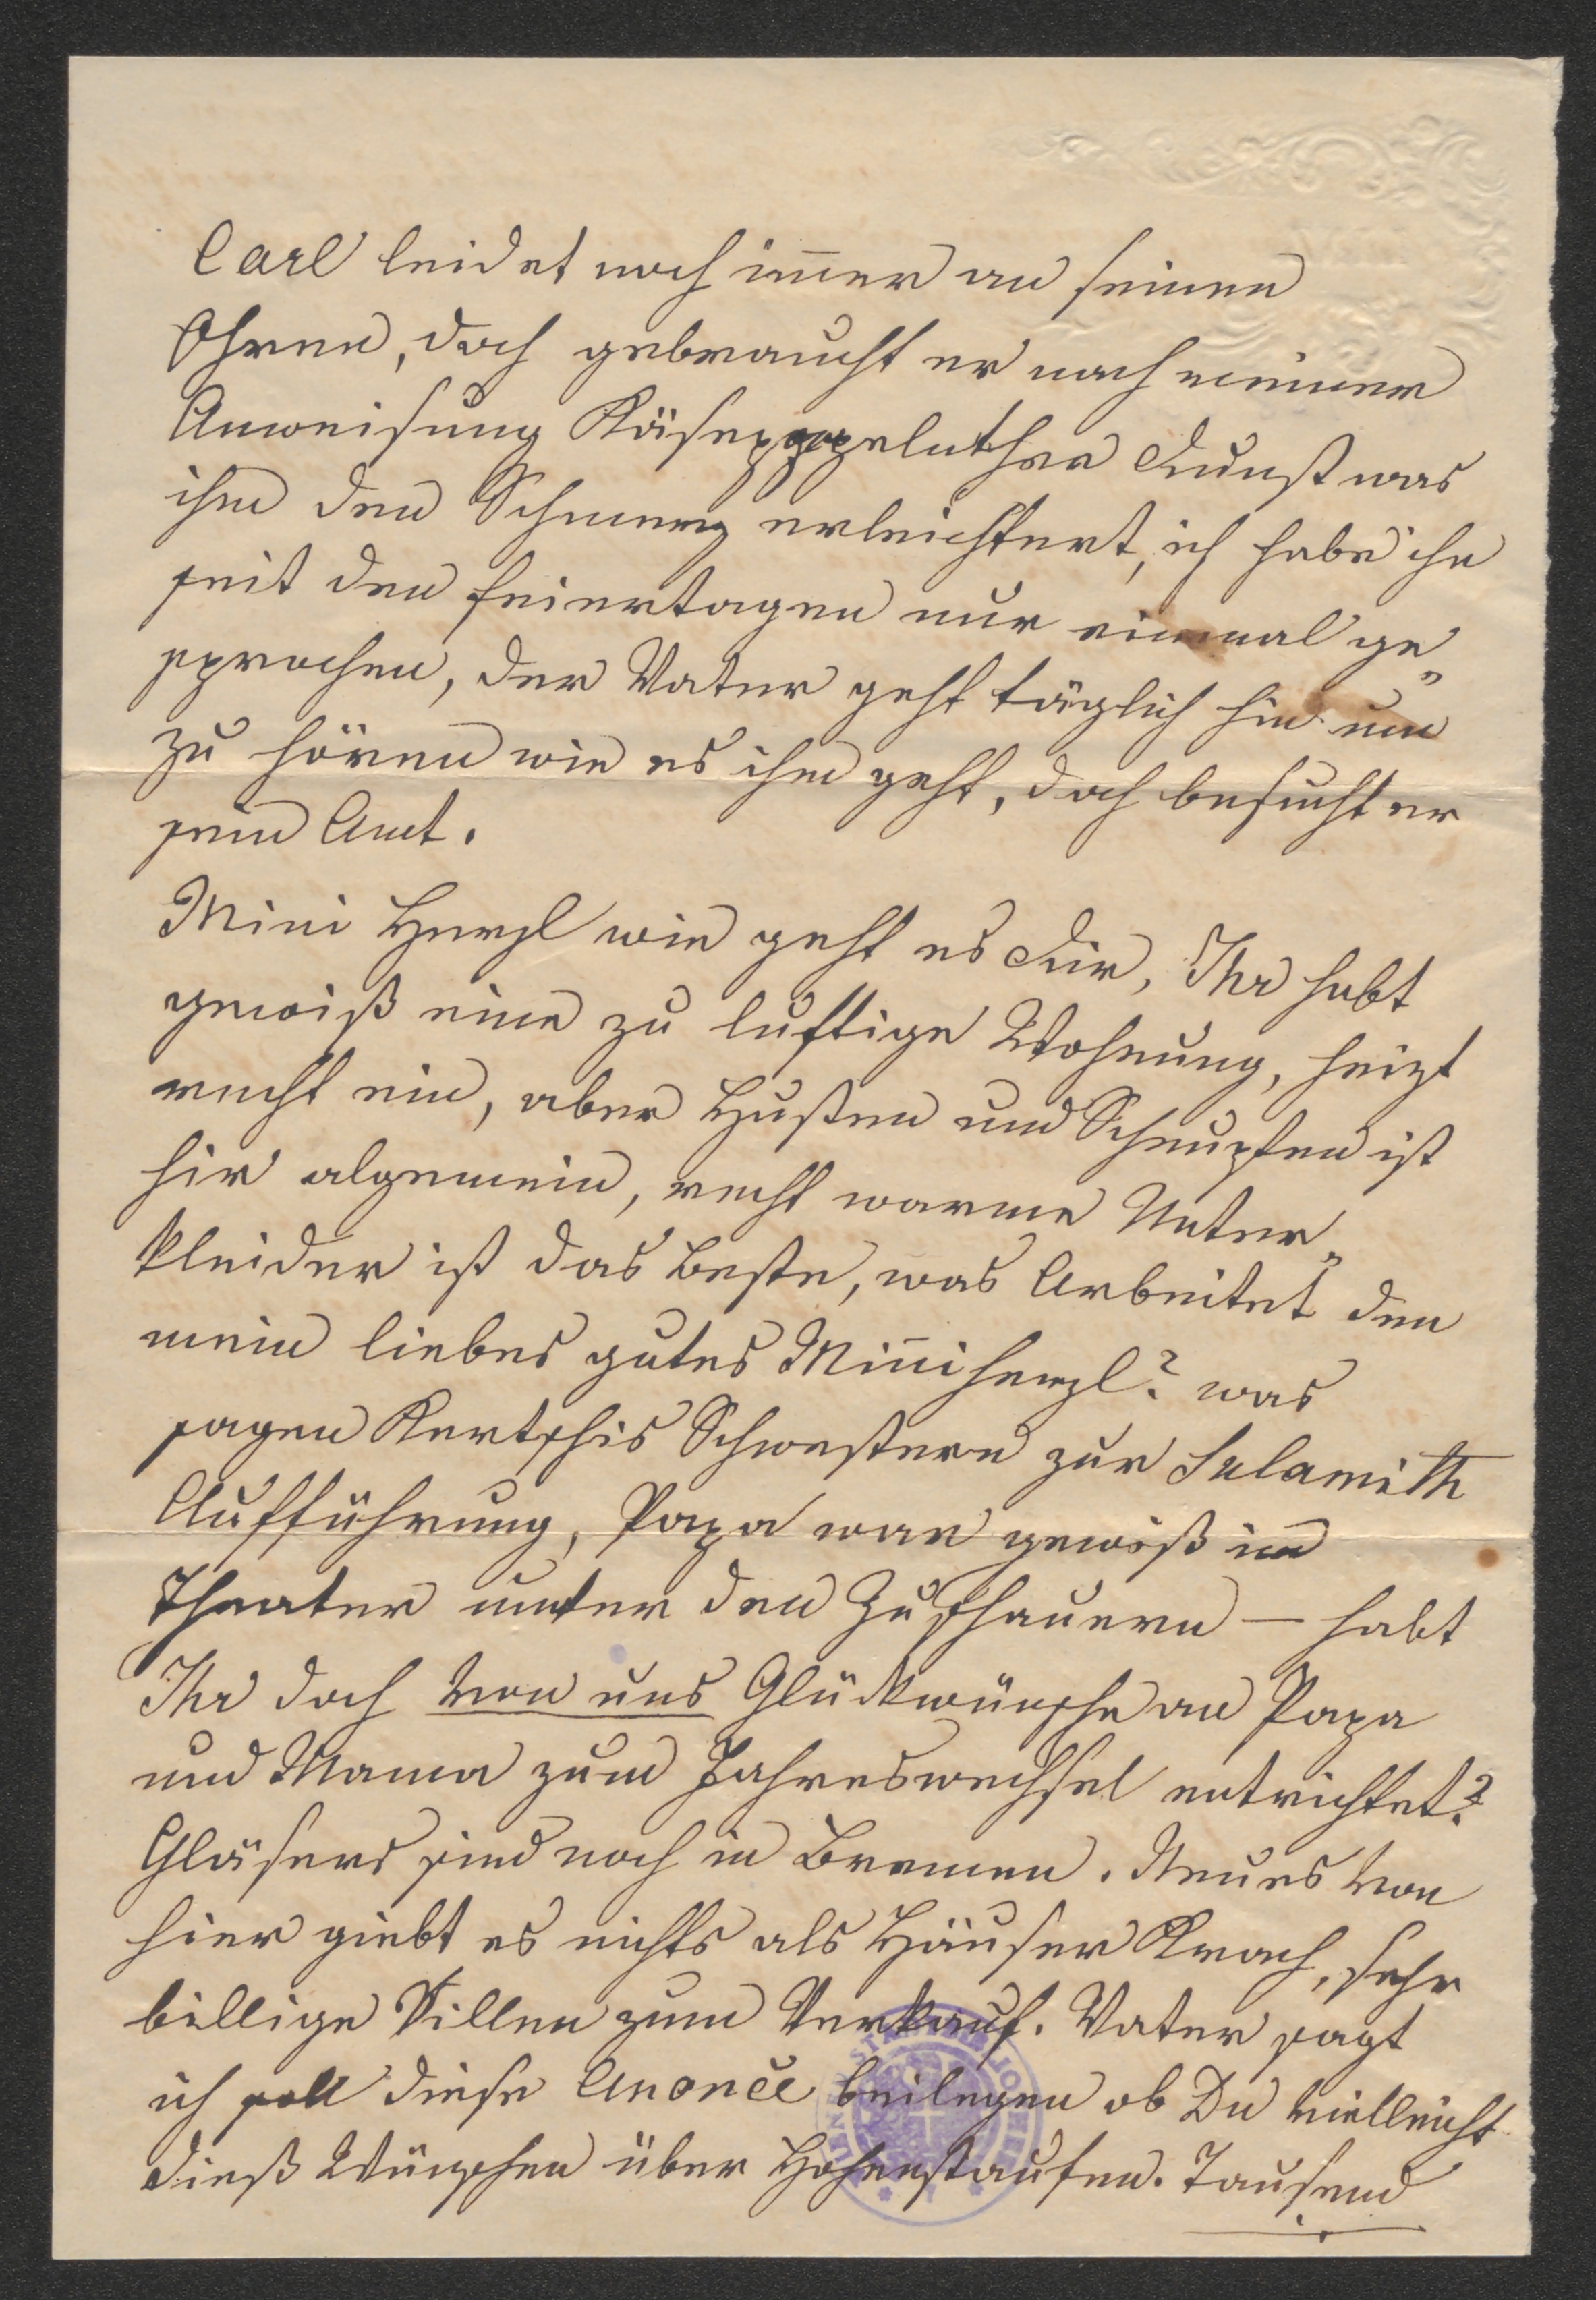 Carl leidet noch im̅er an seinen
Ohren, doch gebraucht er nach meiner
Anweisung Käsepappelnthee Dunst was
ihm den Schmerz erleichtert, ich habe ihn
seit den Feiertagen nur einmal ge„
sprochen, der Vater geht täglich hin um
zu hören wie es ihm geht, doch besucht er
sein Amt.
Mini Herzl wie geht es Dir, Ihr habt
gewiß eine zu luftige Wohnung, heizt
recht ein, aber Husten und Schnupfen ist
hir algemein, recht warme Unter„
kleider ist das Beste, was Arbeitet den
mein liebes gutes Min̅iherzl? was
sagen Kertschis Schwestern zur Sulamith
Aufführung, Papa war gewiß im
Theater unter den Zuschauern — habt
Ihr doch von uns Glückwünsche an Papa
und Mama zum Jahreswechsel entrichtet?
Gläsers sind noch in Bremen. Neues von
hier giebt es nichts als Häuser Krach, sehr
billige Villen zum Verkauf. Vater sagt
ich soll diese Anonce beilegen ob Du vielleicht
dieß Wünschen über Hohenstaufen. Tausend